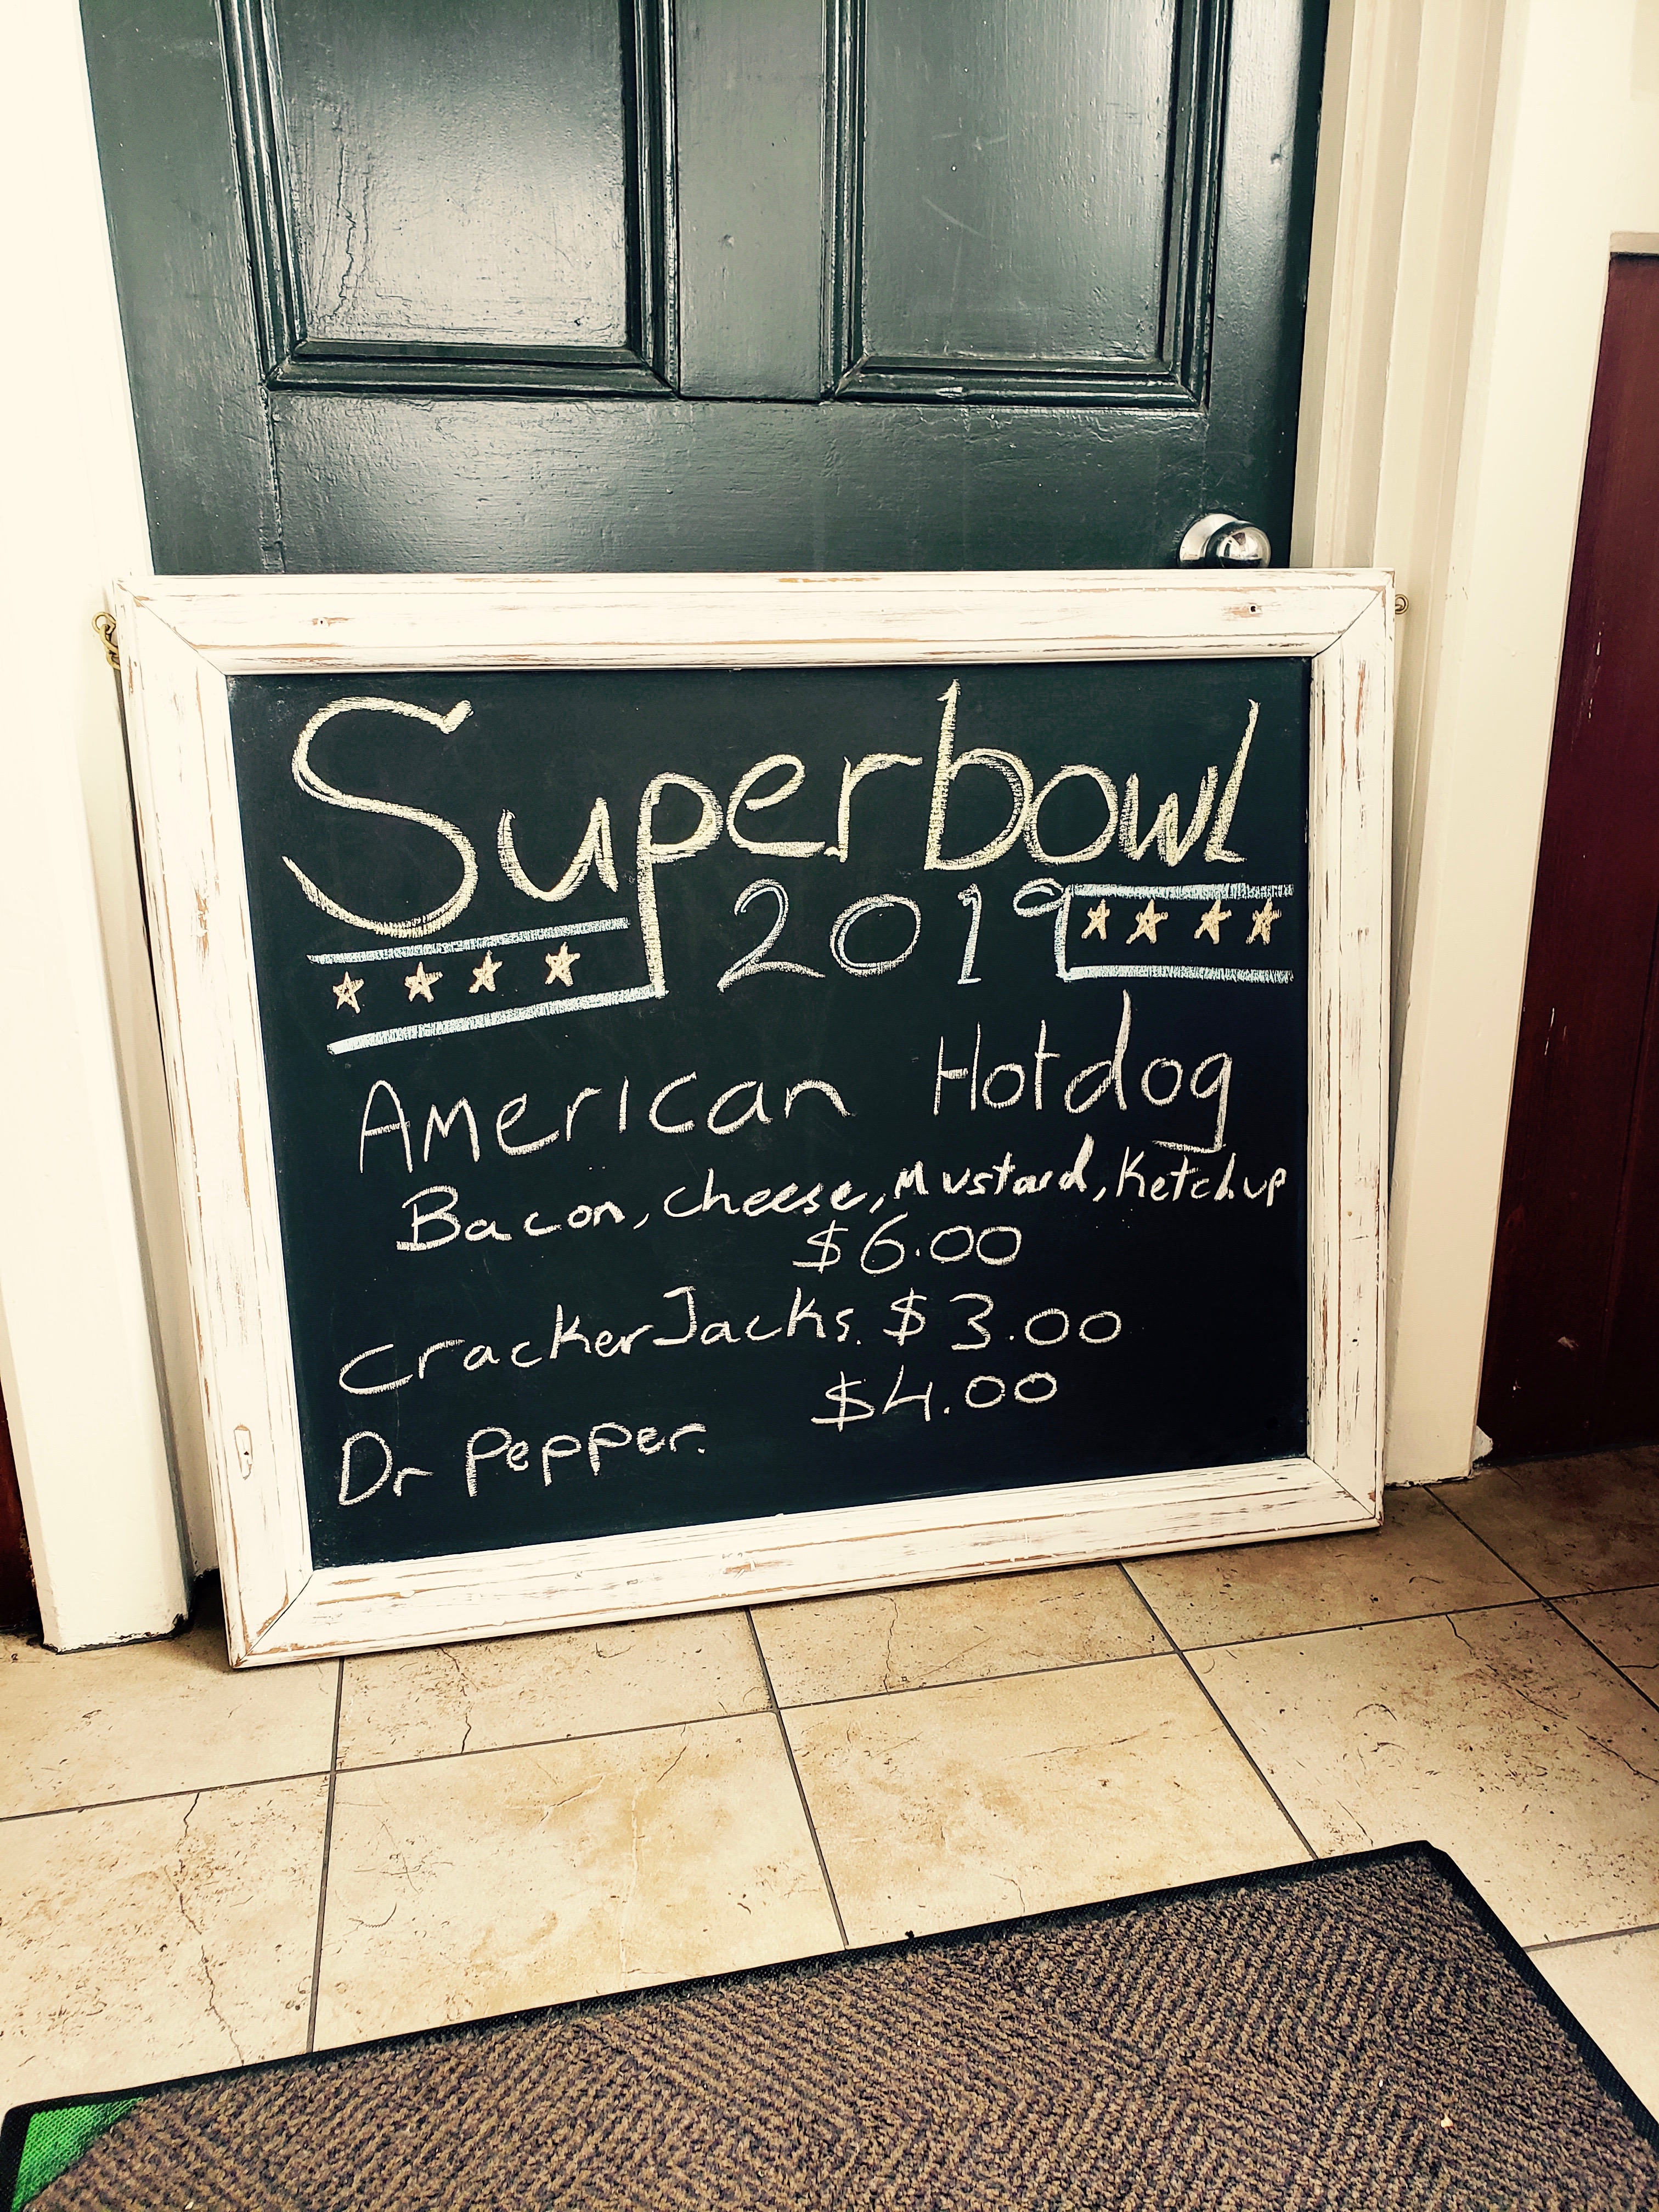 Superbowl
2019
American Hotdog
Bacon, Cheese, Mustard, Ketchup
$6.00
Cracker Jacks. $3.00
Dr Pepper. $4.00